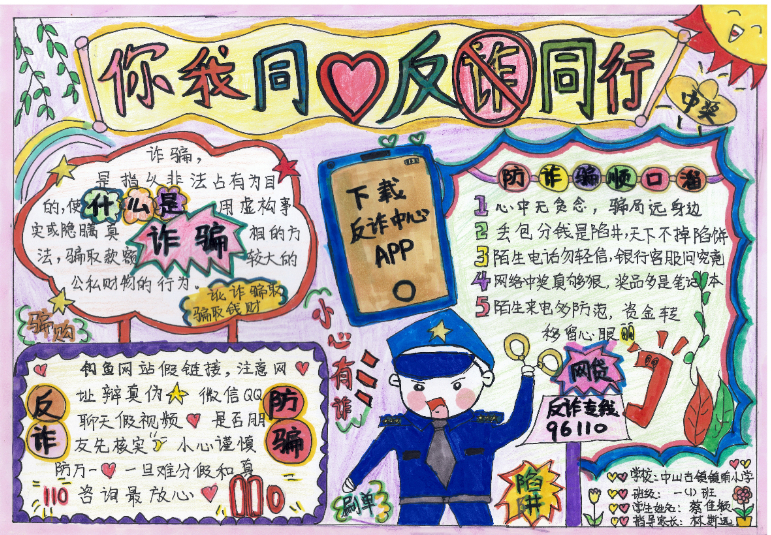 你我同反诈同行
中奖
诈骗，
是指以非法占有为目
的，使什么是用虚构事
实或隐瞒真诈骗相的方
法，骗取款额较大的
公私财物的行为
诈骗取
骗取钱财
骗购
下载
反诈中心
APP
防诈骗顺口溜
1 心中无贪念，骗局远身边
2 丢包分钱是陷井，天下不掉馅饼
3 陌生电话勿轻信，银行客服问究竟
4 网络中奖真够狠，奖品多是笔记本
5 陌生来电多防范，资金转
移留心眼
小心有诈
反诈
防骗
钓鱼网站假链接，注意网
址辩真伪 微信QQ
聊天假视频 是否朋
友先核实 小心谨慎
防万一 一旦难分假和真
110 咨询最放心 110
刷单
陷井
网贷
反诈专线
96110
学校：中山古镇镇南小学
班级：一(1)班
学生姓名：蔡佳敏
指导家长：林斯远